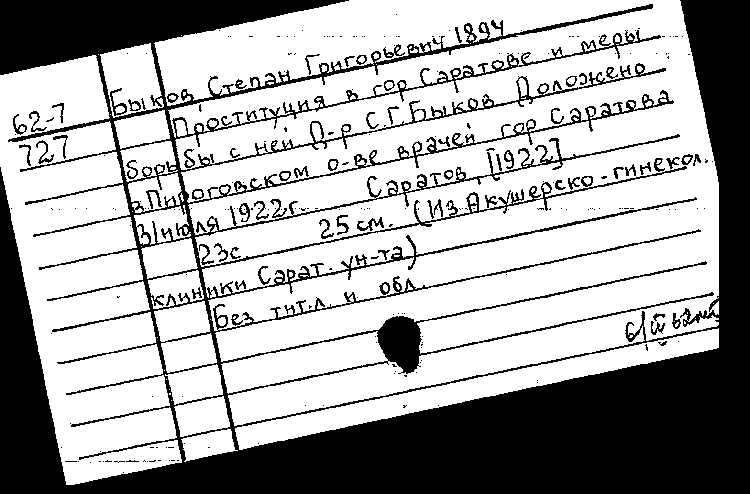 62-7
727
Быков, Степан Григорьевич, 1894
Проституция в гор Саратове и меры
борьбы с ней. Д-р С.Г. Быков Доложено
в Пироговском о-ве врачей гор Саратова
31 июля 1922 г. Саратов, [1922].
23 с. 25 см. (Из Акушерско-гинекол.
клиники Сарат. ун-та)
Без тит. л. и обл.